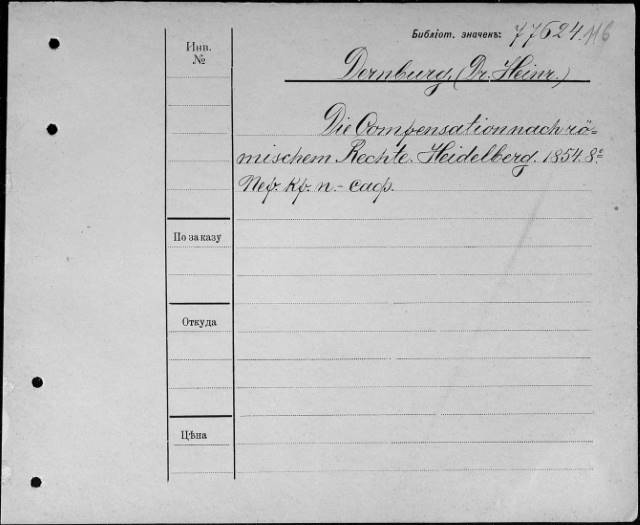 Библіот. значекъ: 77624.116
Инв.
№
Dernburg, (Dr. Heinr.)
Die Compensation nach rö-
mischem Rechte. Heidelberg. 1854. 8º
По заказу
Откуда
Цѣна